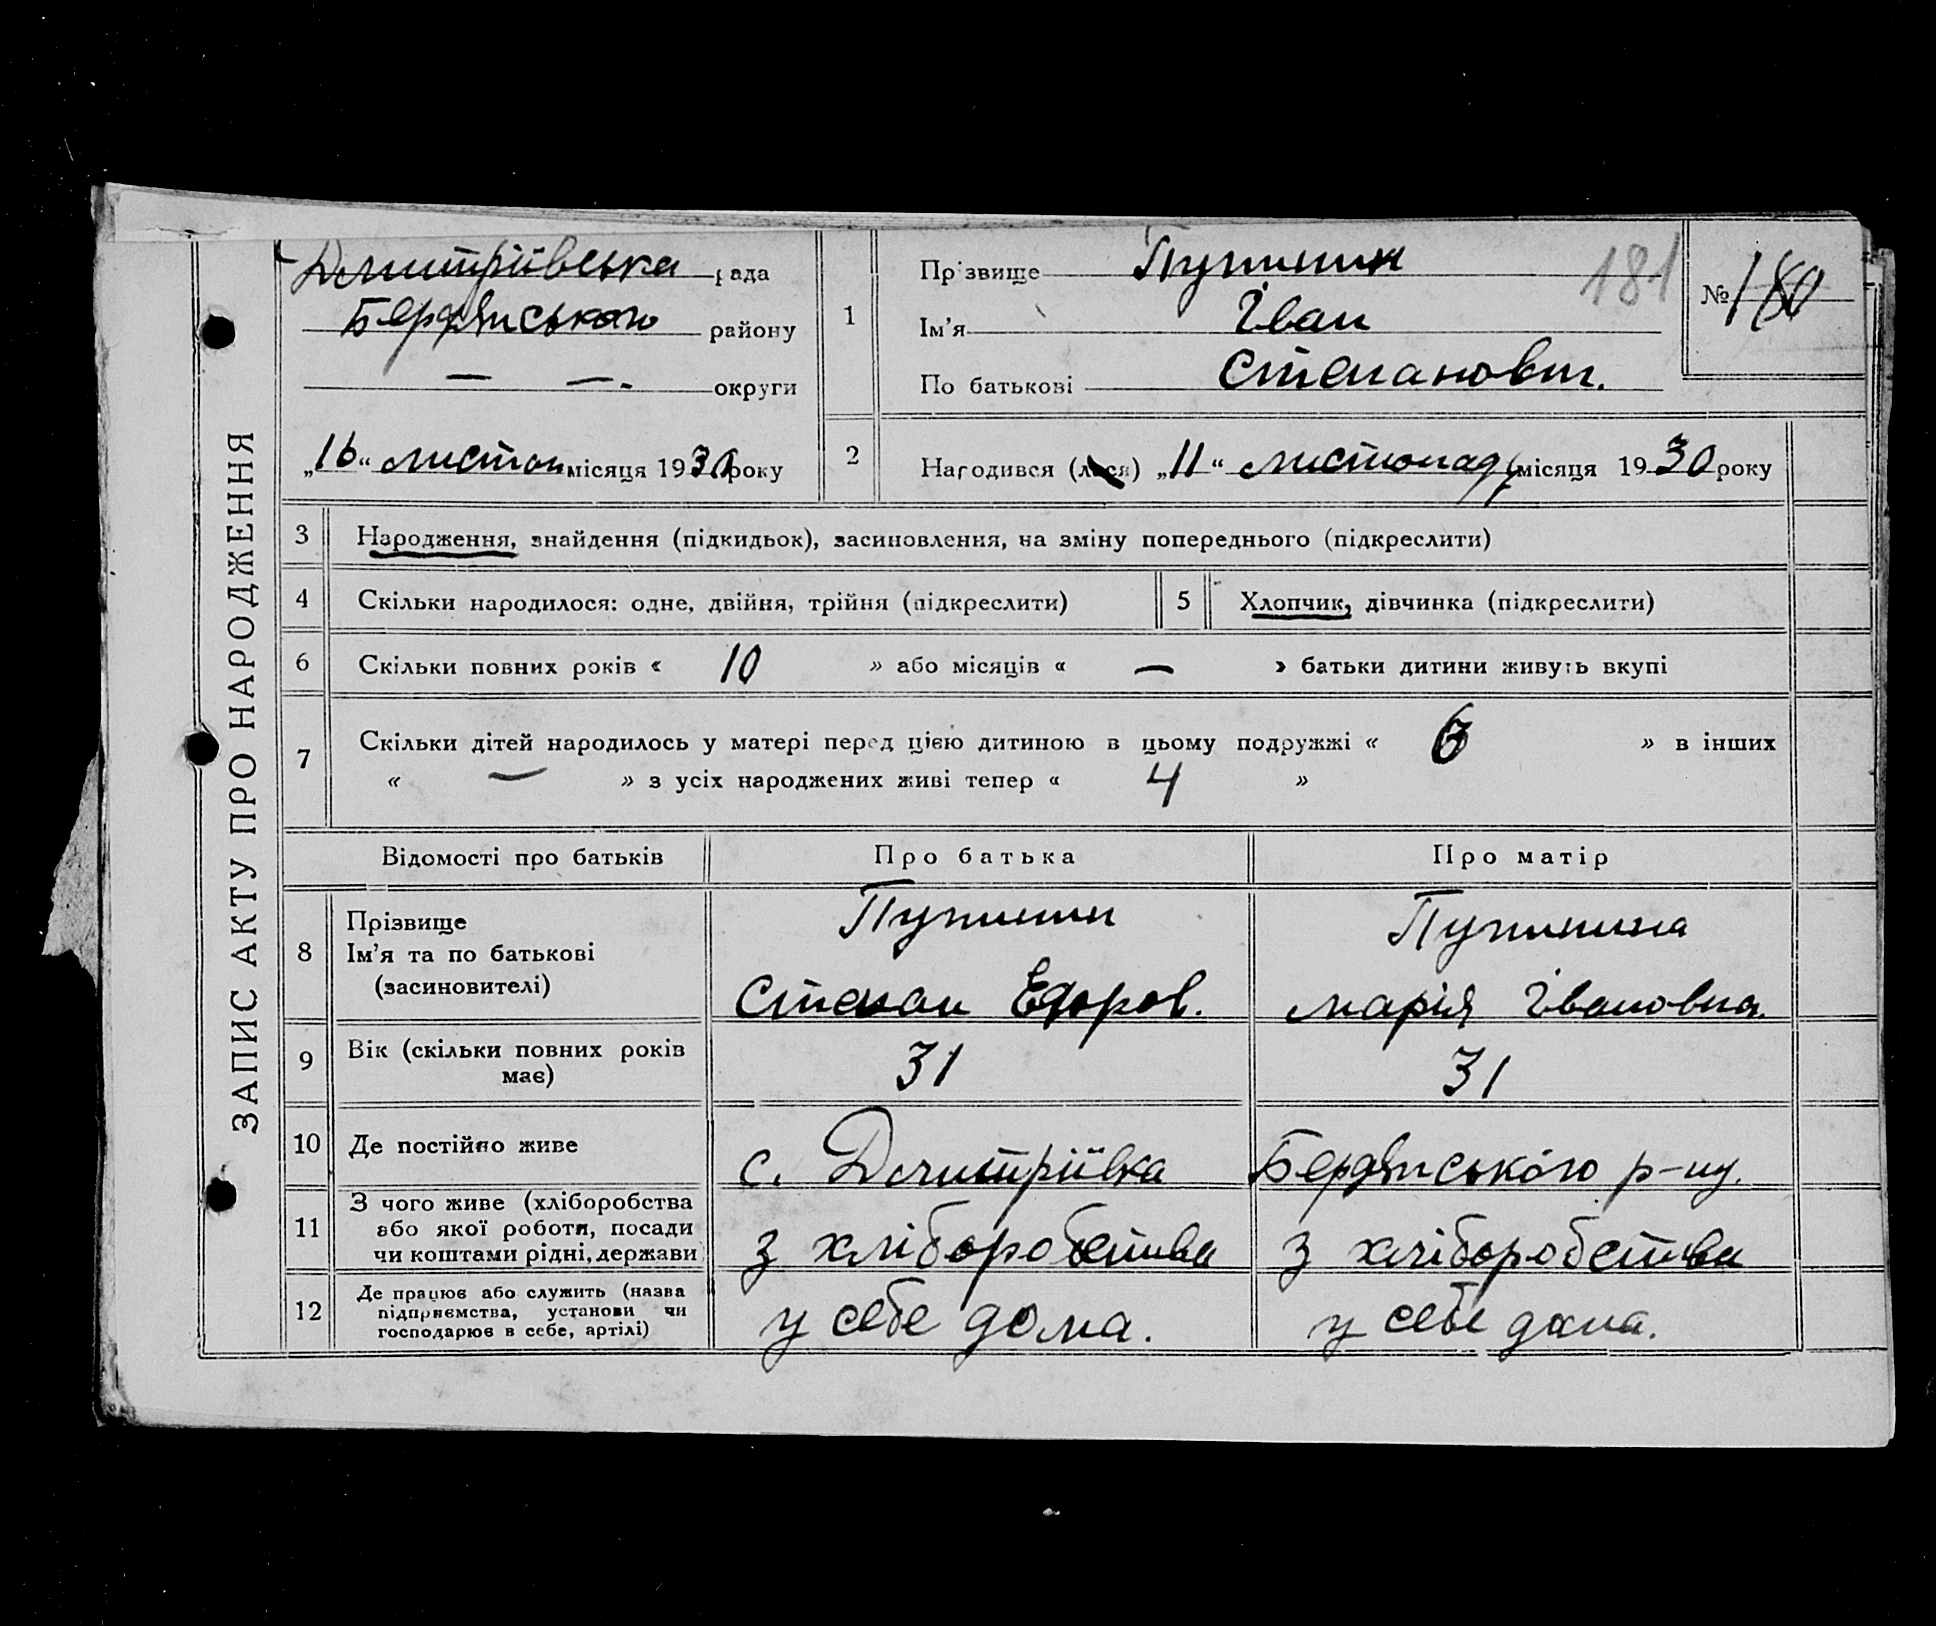 ЗАПИС АКТУ ПРО НАРОДЖЕННЯ
Дмитріївська рада
Бердянського району
— —. округи
„16“ листоп місяця 1930 року
1
Прізвище
Ім’я Іван
По батькові Степанович.
181
№ 180
2
Народився (лася) „11“ листопаду місяця 1930 року
3 Народження, знайдення (підкидьок), засиновлення, на зміну попереднього (підкреслити)
4 Скільки народилося: одне, двійня, трійня (підкреслити)
5 Хлопчик, дівчинка (підкреслити)
6 Скільки повних років « 10 » або місяців « — » батьки дитини живуть вкупі
7 Скільки дітей народилось у матері перед цією дитиною в цьому подружжі « » в інших
« — » з усіх народжених живі тепер « 4 »
Відомості про батьків Про батька Про матір
8
Прізвище
Ім’я та по батькові
(засиновителі)
Степан Едоров.
Марія Івановна.
9 Вік (скільки повних років
має)
31 31
10 Де постійно живе с. Дмитріївка Бердянського р-ну.
11 З чого живе (хліборобства
або якої роботи, посади
чи коштами рідні, держави
з хліборобства з хліборобства
12 Де працює або служить (назва
підприємства, установи чи
господарює в себе, артілі)
у себе дома. у себе дома.